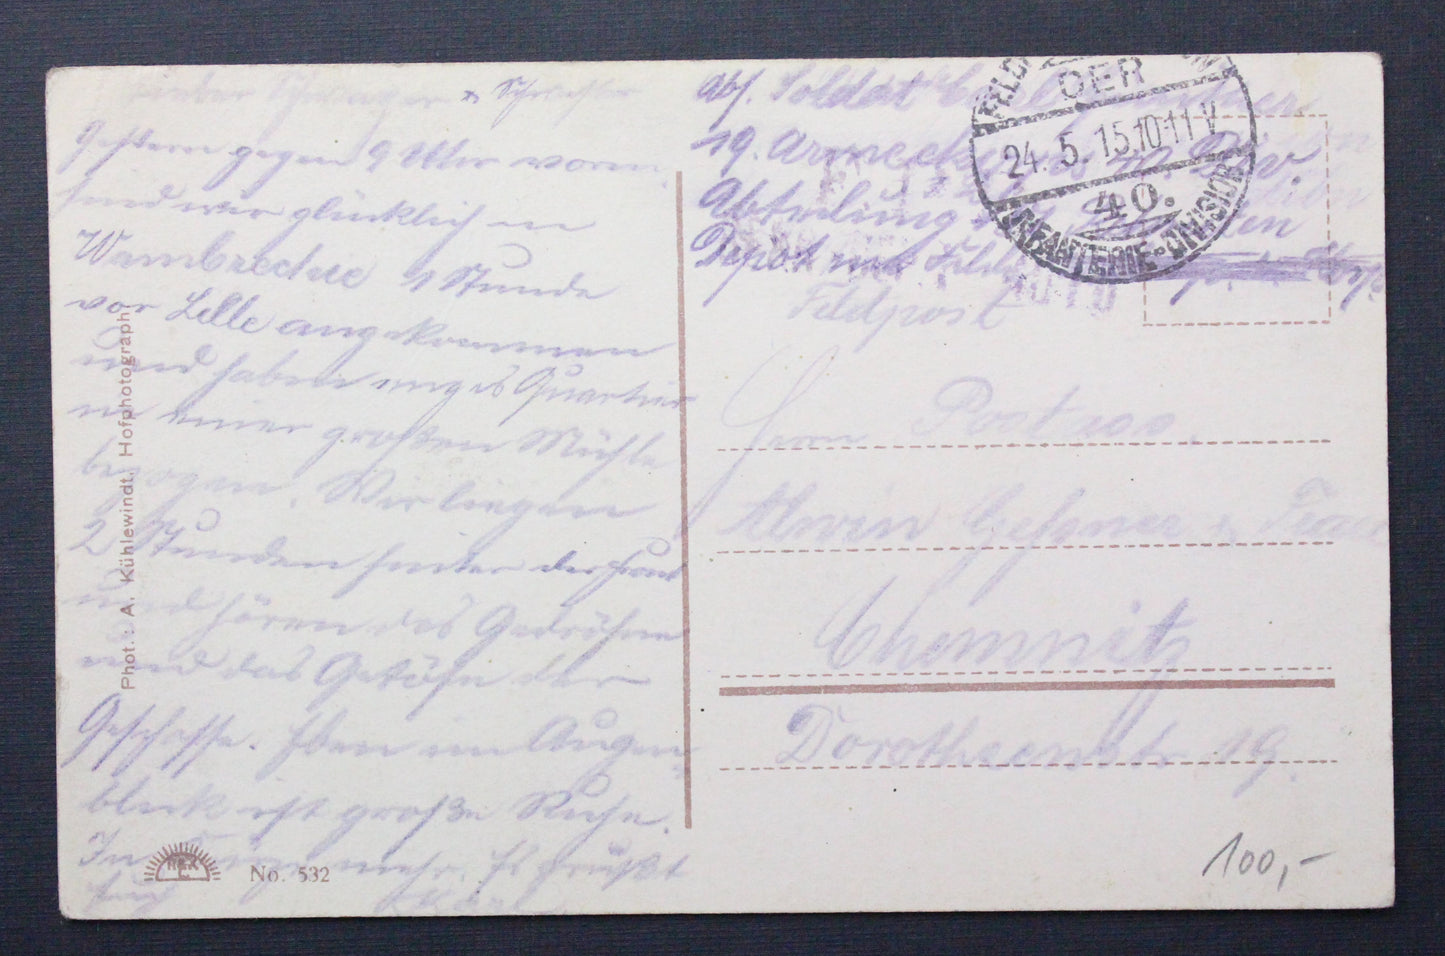 Lieber Schwager u. Schwester
Gestern gegen 9 Uhr vorm.
sind wir glücklich in
Wambrechie 1 Stunde
vor Lille angekommen
und haben unser Quartier
in einer großen Mühle
bezogen. Wir liegen
2 Stunden hinter der Front
und hören das Gedröhne
und das Getöse der
Geschosse. Eben im Augen-
blick ist große Ruhe.
In mehr. Es grüßt
Euch Karl
Phot.: A. Kühlewindt, Hofphotograph
No. 532
Abs. Soldat
19. Armeekorps 40. Div.
Abteilung
Depot
Feldpost
DER
24.5.15.10-11V
40.
INFANTERIE-DIVISION
Herrn Postass.
Alwin Geßner u. Frau
Chemnitz
Dorotheenstr. 19.
100,-